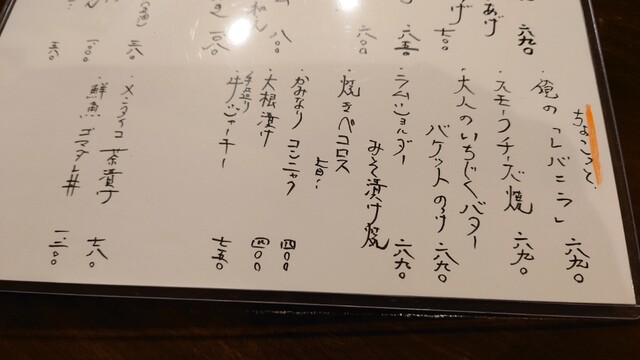 ちょこっと、
・俺の「レバニラ」 六九〇
・スモークチーズ焼 六九〇
・大人のいちじくバター
バケットのっけ 六九〇
・ラムショルダー
みそ漬け焼 六九〇
・焼きペコロス
旨!
・かみなりコンニャク 四〇〇
・大根漬け 四〇〇
・手造り
牛ジャーキー 七五〇
・メンタイコ茶漬け 七八〇
・鮮魚ゴマダレ丼 一二〇〇
あげ 六九〇
げ 七〇〇
八五〇
六〇〇
八〇〇